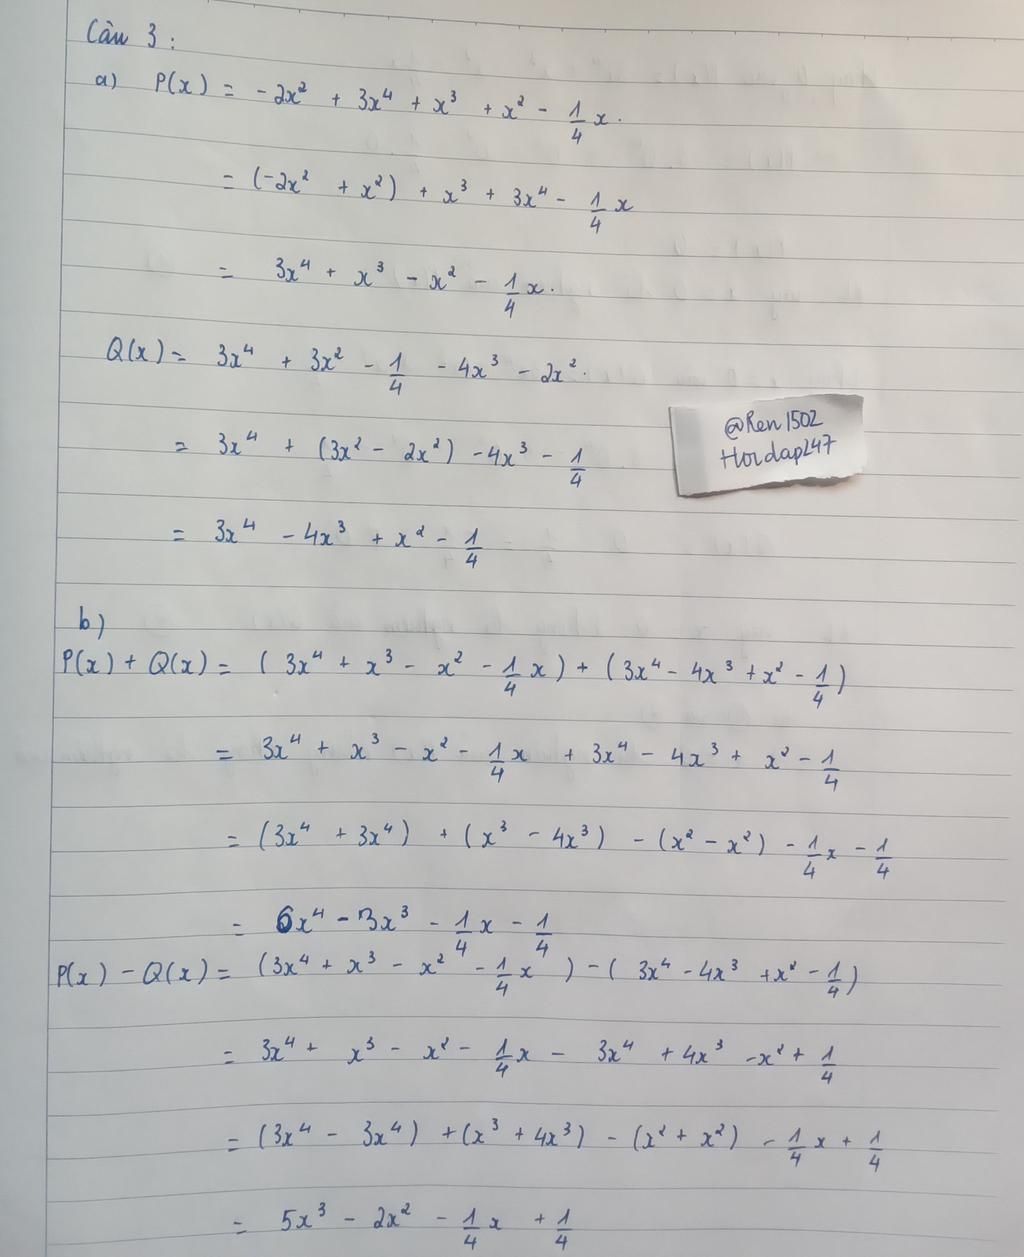 Câu 3 :
a) P(x) = -2x² + 3x⁴ + x³ + x² - 1/4 x.
= (-2x² + x²) + x³ + 3x⁴ - 1/4 x
= 3x⁴ + x³ - x² - 1/4 x.
Q(x) = 3x⁴ + 3x² - 1/4 - 4x³ - 2x².
= 3x⁴ + (3x² - 2x²) - 4x³ - 1/4
= 3x⁴ - 4x³ + x² - 1/4
@Ren1502
Hoidap247
b)
P(x) + Q(x) = (3x⁴ + x³ - x² - 1/4 x) + (3x⁴ - 4x³ + x² - 1/4)
= 3x⁴ + x³ - x² - 1/4 x + 3x⁴ - 4x³ + x² - 1/4
= (3x⁴ + 3x⁴) + (x³ - 4x³) - (x² - x²) - 1/4 x - 1/4
= 6x⁴ - 3x³ - 1/4 x - 1/4
P(x) - Q(x) = (3x⁴ + x³ - x² - 1/4 x) - (3x⁴ - 4x³ + x² - 1/4)
= 3x⁴ + x³ - x² - 1/4 x - 3x⁴ + 4x³ - x² + 1/4
= (3x⁴ - 3x⁴) + (x³ + 4x³) - (x² + x²) - 1/4 x + 1/4
= 5x³ - 2x² - 1/4 x + 1/4